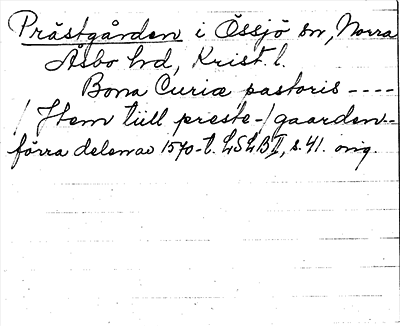 Prästgården i Össjö sn, Norra
Åsbo hd, Krist. l.
Bona Curiæ pastoris ----
/ Item till preste-/gaarden--
förra delen av 1570-t. LSLB II, s. 41. orig.